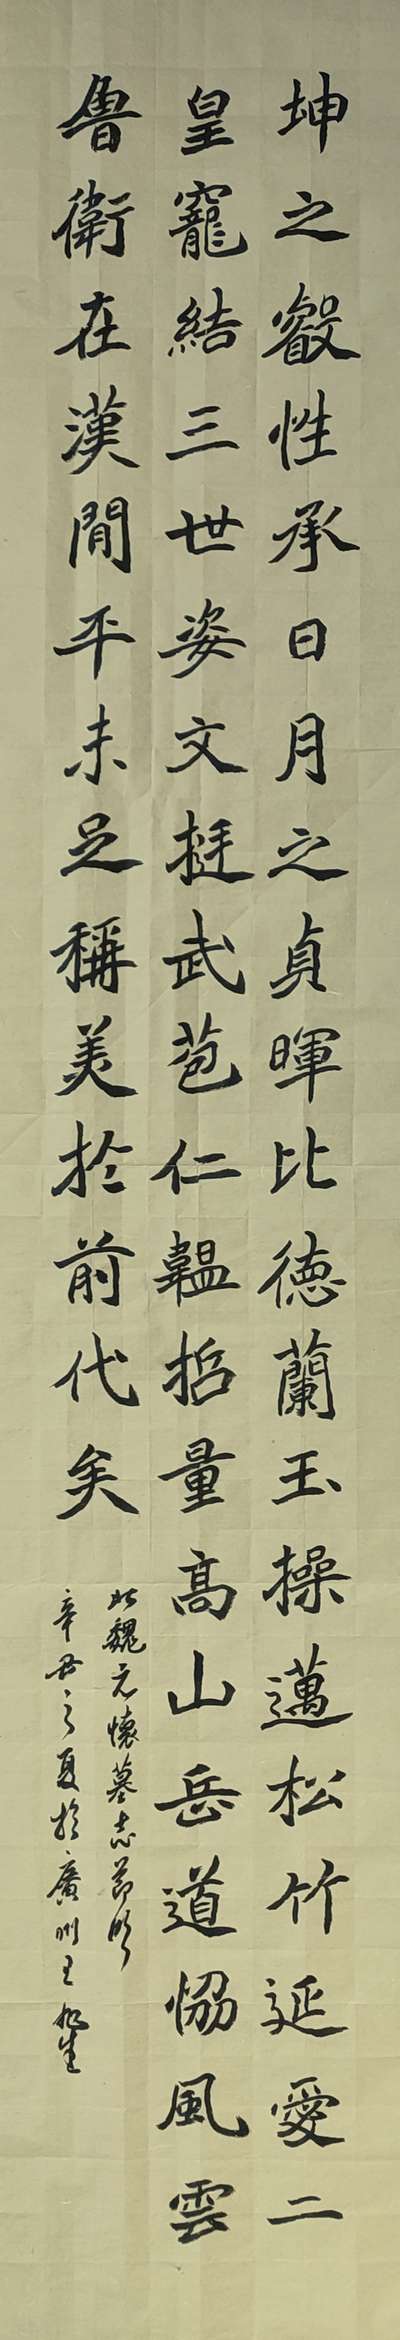 坤之叡性承日月之貞暉比徳蘭玉操邁松竹延愛二
皇寵結三世姿文挺武苞仁韞哲量高山岳道恊風雲
魯衛在漢閒平未足稱美於前代矣
北魏元懷墓志節臨
辛丑之夏於廣州王